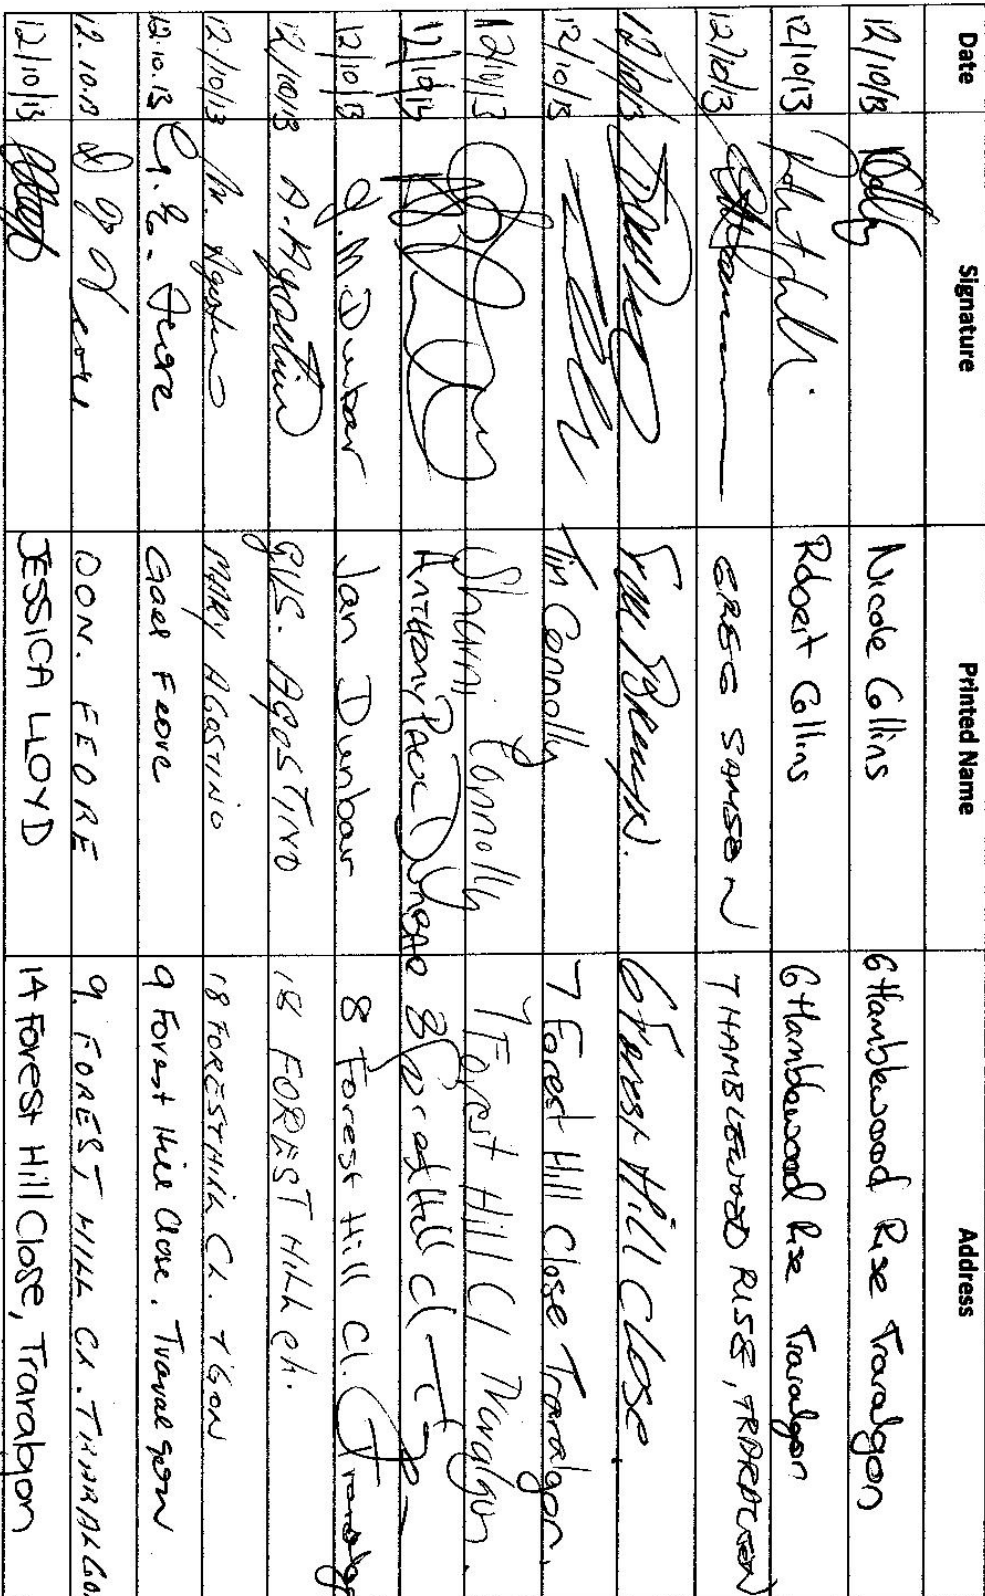 Date Signature Printed Name Address
12/10/13 Nicole Collins 6 Hamblewood Rise Traralgon
12/10/13 Robert Collins 6 Hamblewood Rise Traralgon
12/10/13 GREG SAMSON 7 HAMBLEWOOD RISE, TRARALGON
12/10/13 6 Forest Hill Close
12/10/13 Tim Connolly 7 Forest Hill Close Traralgon.
12/10/13 Connolly 7 Forest Hill Cl Traralgon.
12/10/13 ANTHONY PAUL DUNBAR 8 Forest Hill Cl
12/10/13 J. M. Dunbar Jan Dunbar 8 Forest Hill Cl.
12/10/13 A. Agostino AGOSTINO 18 FOREST HILL CL.
12/10/13 M. Agostino MARY AGOSTINO 18 FOREST HILL CL. T'GON
12.10.13 G. E. Feore Gael Feore 9 Forest Hill Close. Traralgon
12.10.13 DON. FEORE 9. FOREST HILL CL. TRARALGON
12/10/13 JESSICA LLOYD 14 Forest Hill Close, Traralgon